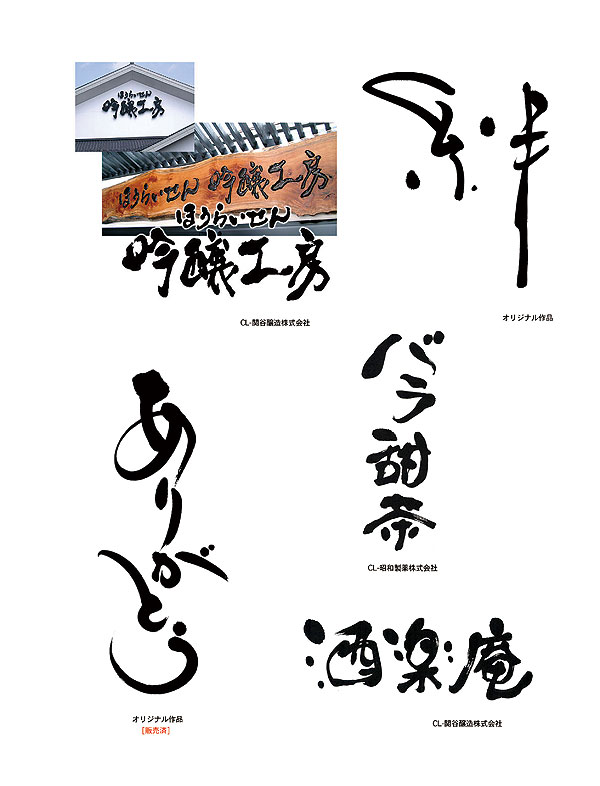 ほうらいせん
吟醸工房
ほうらいせん 吟醸工房
ほうらいせん
吟醸工房
CL-関谷醸造株式会社
絆
オリジナル作品
バラ甜茶
CL-昭和製薬株式会社
ありがとう
オリジナル作品
[販売済]
酒楽庵
CL-関谷醸造株式会社